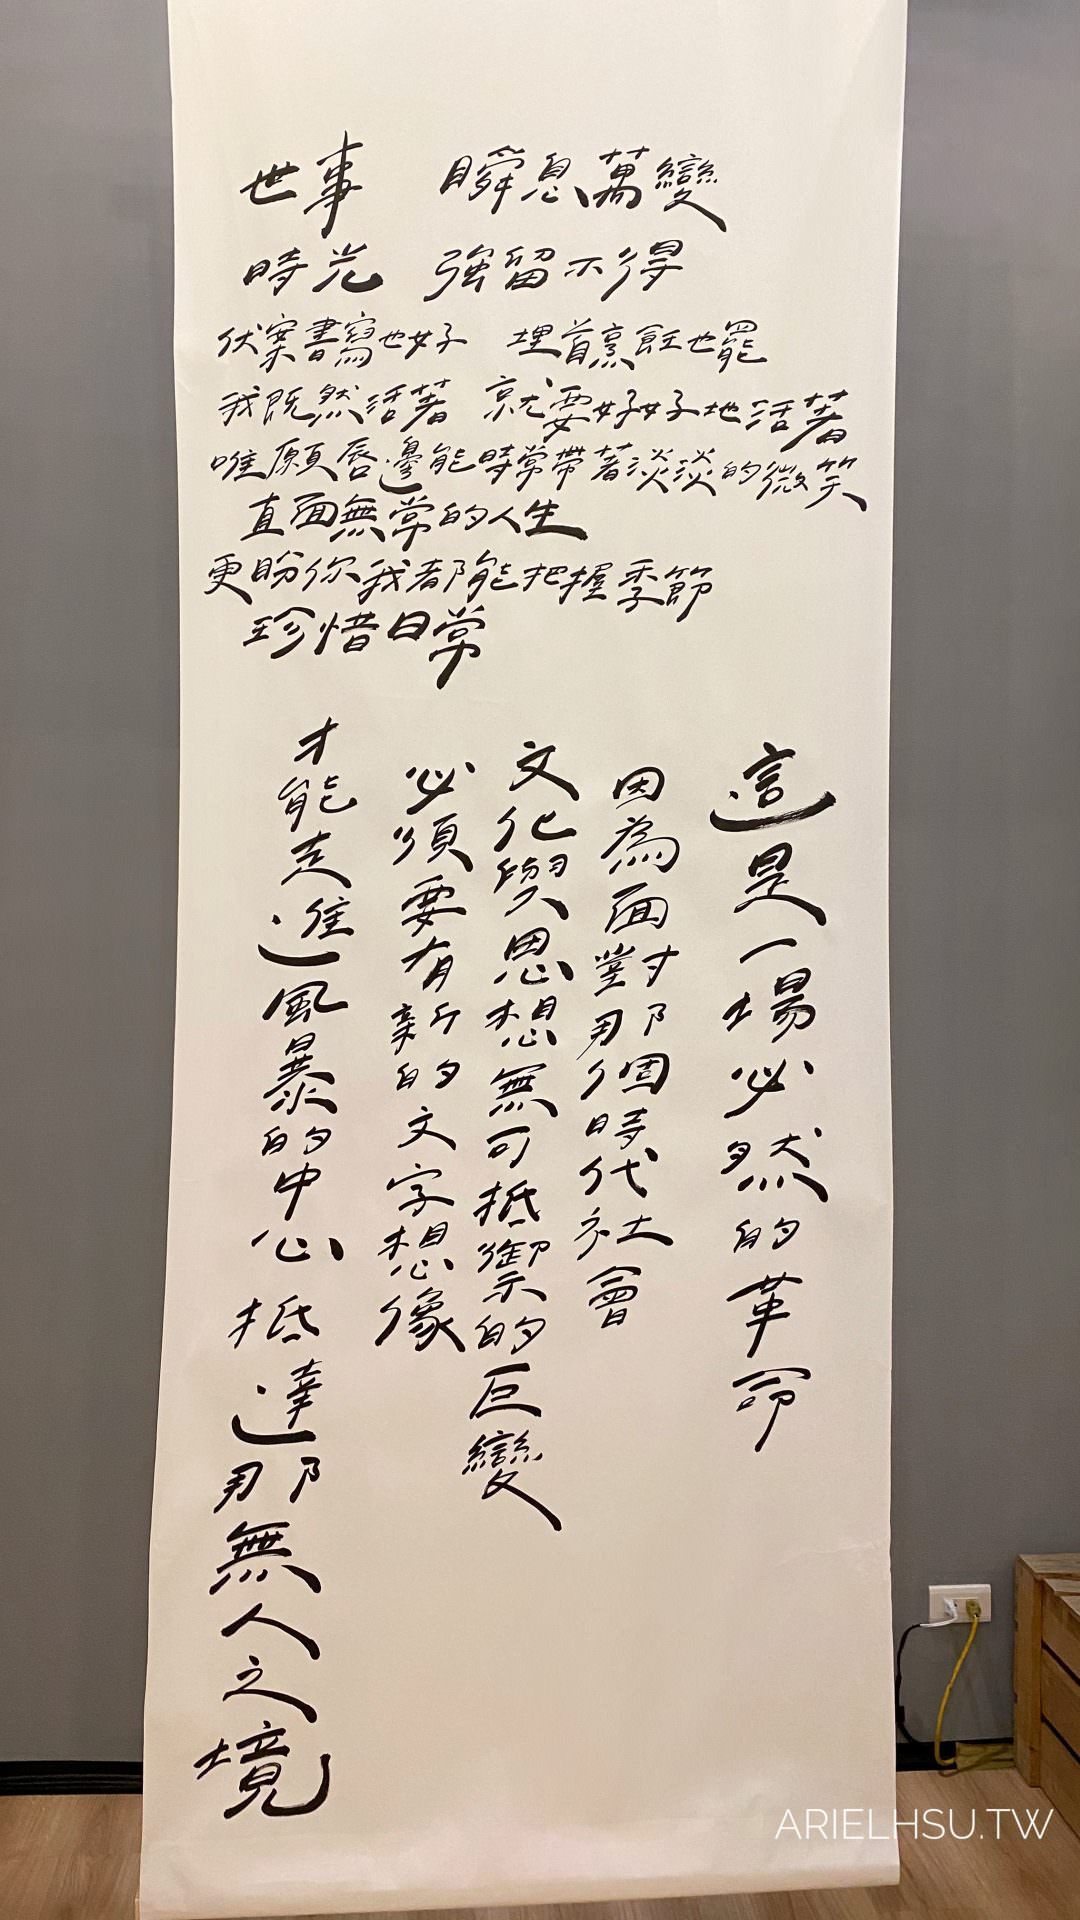 世事　瞬息萬變
時光　強留不得
伏案書寫也好　埋首烹飪也罷
我既然活著　就要好好地活著
唯願唇邊能時常帶著淡淡的微笑
直面無常的人生
更盼你我都能把握季節
珍惜日常
這是一場必然的革命
因為面對那個時代社會
文化與思想無可抵禦的巨變
必須要有新的文字想像
才能走進風暴的中心　抵達那無人之境
ARIELHSU.TW